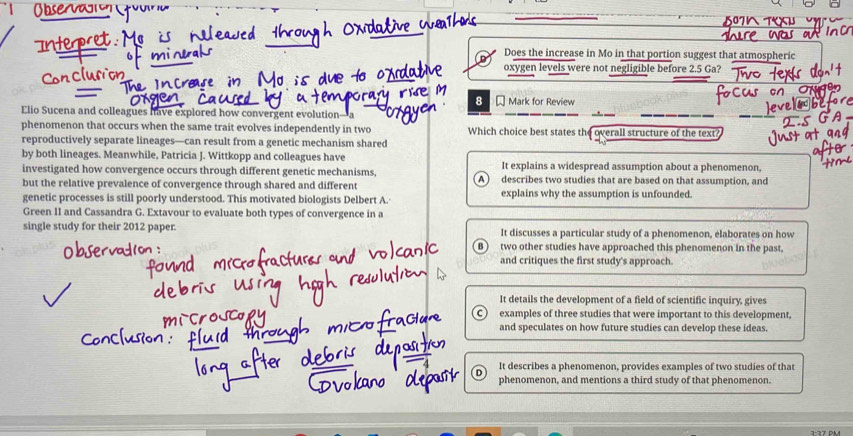 Observation
Interpret: Mo is released through oxidative weathers
of minerals
Conclusion
The increase in Mo is due to oxidative
oxygen caused by a temporary rise in
oxygen
Both texts
there was an
D Does the increase in Mo in that portion suggest that atmospheric
oxygen levels were not negligible before 2.5 Ga?
Two texts don't
focus on oxygen
level before
2.5 GA-
just at and
after
time
Elio Sucena and colleagues have explored how convergent evolution—a
phenomenon that occurs when the same trait evolves independently in two
reproductively separate lineages—can result from a genetic mechanism shared
by both lineages. Meanwhile, Patricia J. Wittkopp and colleagues have
investigated how convergence occurs through different genetic mechanisms,
but the relative prevalence of convergence through shared and different
genetic processes is still poorly understood. This motivated biologists Delbert A.
Green II and Cassandra G. Extavour to evaluate both types of convergence in a
single study for their 2012 paper.
observation:
found microfractures and volcanic
debris using high resolution
microscopy
conclusion: fluid through microfracture
long after debris deposition
volcano deposit
4
8 Mark for Review
Which choice best states the overall structure of the text?
A It explains a widespread assumption about a phenomenon,
describes two studies that are based on that assumption, and
explains why the assumption is unfounded.
B It discusses a particular study of a phenomenon, elaborates on how
two other studies have approached this phenomenon in the past,
and critiques the first study's approach.
C It details the development of a field of scientific inquiry, gives
examples of three studies that were important to this development,
and speculates on how future studies can develop these ideas.
D It describes a phenomenon, provides examples of two studies of that
phenomenon, and mentions a third study of that phenomenon.
3:37 PM